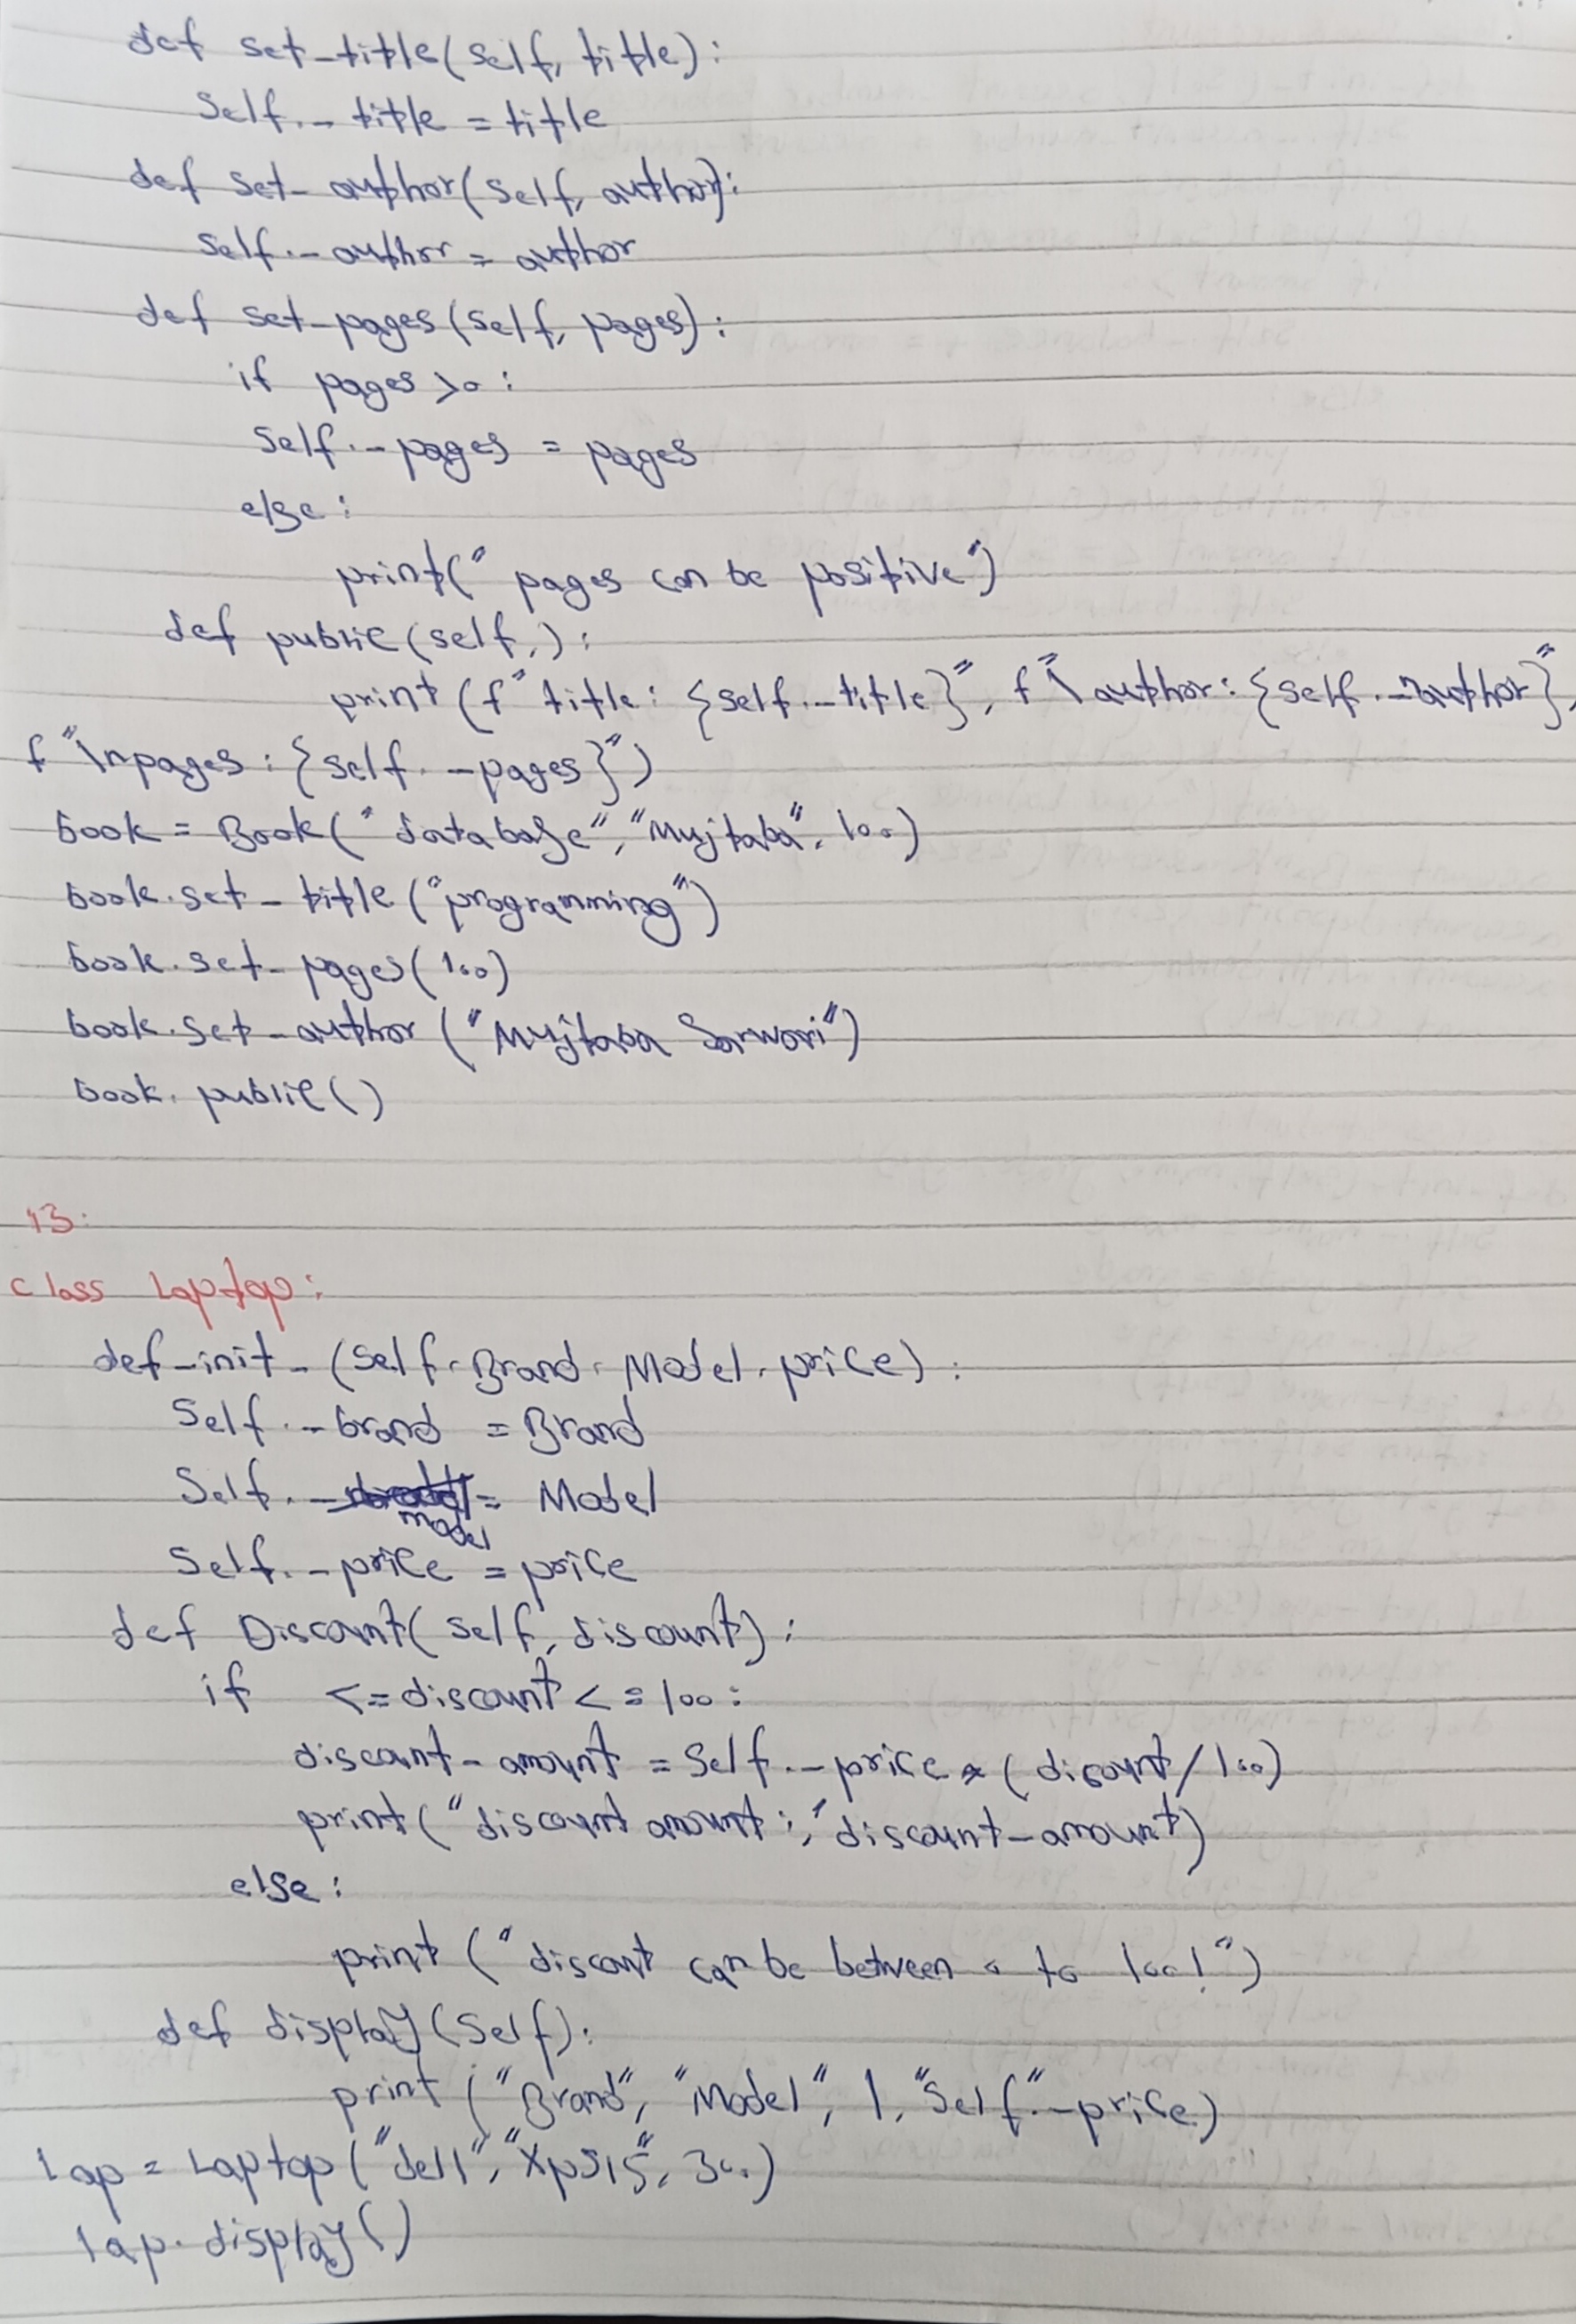 def set_title(self, title):
self._title = title
def set_author(self, author):
self._author = author
def set_pages(self, pages):
if pages >0:
self._pages = pages
else:
print("pages can be positive")
def public(self,):
print(f"title: {self._title}", f"\author:{self._author}",
f"\npages:{self._pages}")
book = Book("database","Mujtaba", 100)
book.set_title("programming")
book.set_pages(100)
book.set_author("Mujtaba Sarwari")
book.public()
13:
class Laptop:
def _init_(self, Brand, Model, price):
self._brand = Brand
Self._model = Model
Self._price = price
def Discount(self, discount):
if <= discount < = 100:
discount_amount = Self._price * (discount/100)
print("discount amount:," discount_amount)
else:
print("discont can be between 0 to 100!")
def display(Self):
print("Brand", "Model", |, "Self"._price)
lap = Laptop("dell","Xps15", 300)
lap.display()